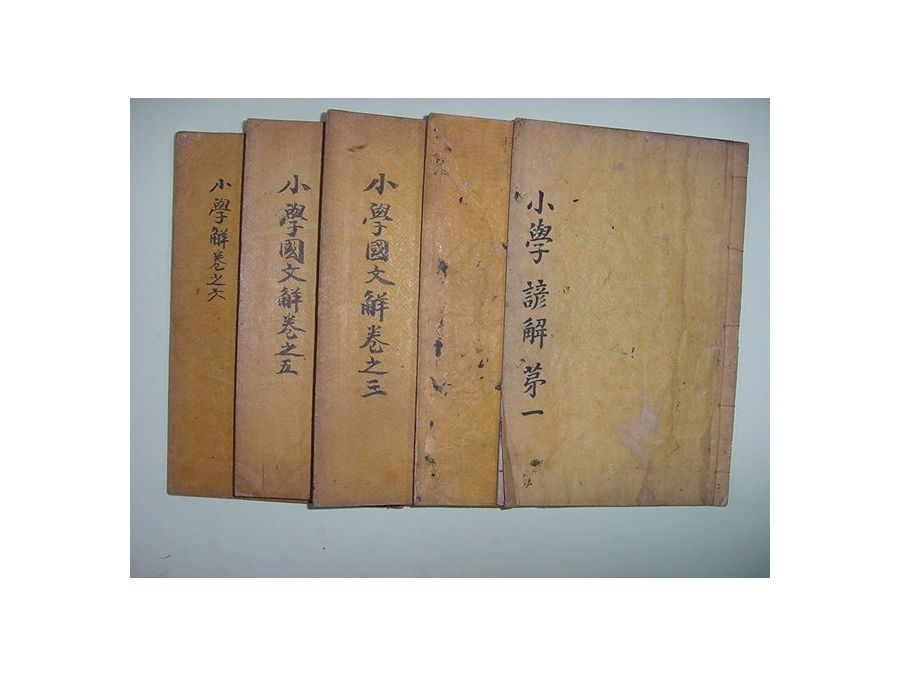 小學諺解 苐一
小學國文觧卷之三
小學國文觧卷之五
小學觧卷之六